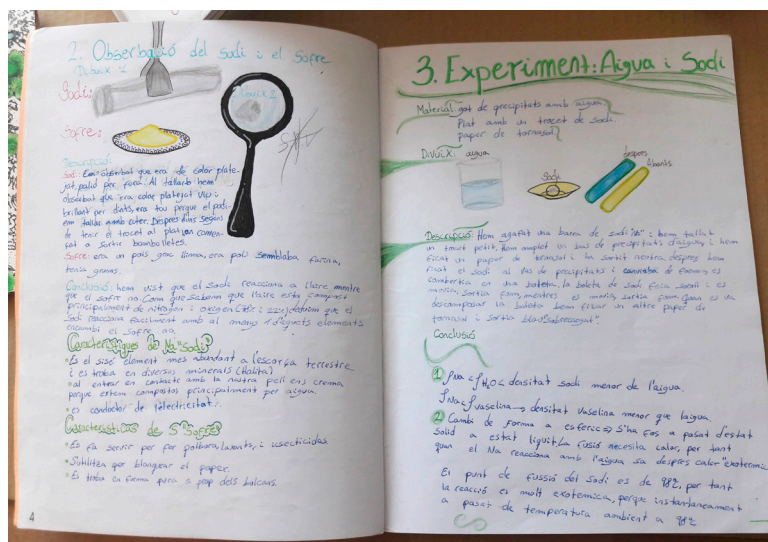 2. Observació del sodi i el Sofre
Dibuix 1
Sodi:
Dibuix 2
Sofre:
Descripció:
Sodi: Em obserbat que era de color plate-
jat, palid per fora. Al tallarlo hem
obserbat que era color platejat viu i
brillant per dints, era tou perque el podi-
em tallar amb cúter. Despres d'uns segons
de tenir el trocet al plat, van comen-
çat a sortir bombolletes.
Sofre: era un pols groc llima, era pols semblaba farina,
tenia grumos.
Conclusió: hem vist que el Sodi reacciona a l'aire mentre
que el sofre no. Com que sabem que l'aire esta compost
principalment de nitrogen i oxigen deduim que el
Sodi reacciona facilment amb al menys 1 d'aquets elements
encambi el Sofre no.
Característiques de Na "Sodi"
• Es el sisé element mes abundant a l'escorça terrestre
i es troba en diversos minerals (Halita)
• al entrar en contacte amb la nostra pell ens crema
porque estem compostos principalment per aigua.
• es conductor de l'electricitat.
Caracteristicas de S "Sofre"
• Es fa servir per fer polbora, laxants, i insecticidas
• S'utilitza per blanquear el paper.
• Es troba en forma pura a prop dels bolcans.
4
3. Experiment: Aigua i Sodi
Material: got de precipitats amb aigua
Plat amb un trocet de Sodi
paper de tornasol
Divuix: aigua
Sodi
despres
Abants
Descripció: Hem agafat una barra de sodi "Na" i hem tallat
un trout petit. Hem omplet un bas de precipitats d'aigua, i hem
ficat un paper de tornasol i ha sortit neutra, despres hem
ficat el sodi al bas de precipitats i canviaba de forma, es
combertia en una boleta, la boleta de sodi feia soroll i es
movia, sortia fum, mentres es movia sortia fum. Quan es va
descomposar la boleta hem ficar un altre paper de
tornasol i sortia blau
Conclusió
1 ρNa < ρH2O < densitat sodi menor de l'aigua.
ρNa < ρvaselina → densitat vaselina menor que l'aigua.
2 Cambi de forma a esferic => S'ha fos a pasat d'estat
solid a estat liquit/La fusió necesita calor, per tant
quan el Na reacciona amb l'aigua sa despres calor "exotermic
El punt de fussió del sodi es de 98º, per tant
la reacció es molt exotermica, perque instantaneament
a pasat de temperatura ambient a 98º